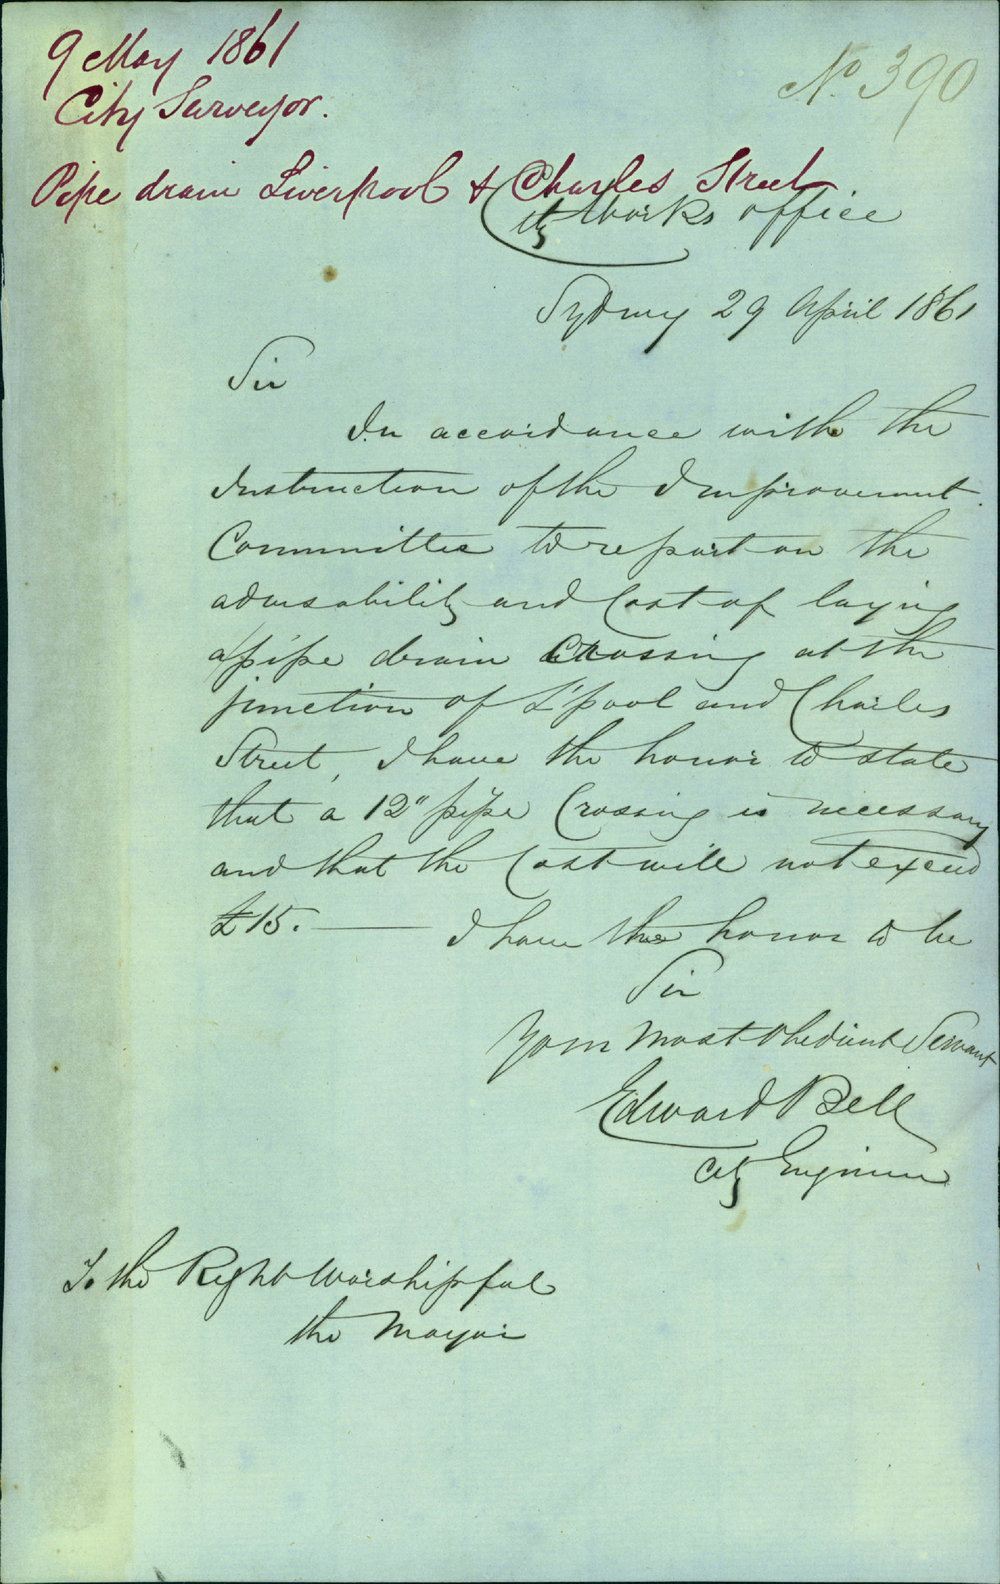 9 May 1861
No. 390
City Surveyor.
Pipe drain Liverpool & Charles Street.
City Works Office
Sydney 29 April 1861
Sir
In accordance with the
Instruction of the Improvement
Committee to report on the
advisability and Cost of laying
a pipe drain Crossing at the
junction of L'pool and Charles
Street, I have the honor to state
that a 12" pipe Crossing is necessary
and that the Cost will not exceed
£15. — I have the honor to be
Sir
Your Most Obedient Servant
Edward Bell
City Engineer
To the Right Worshipful
the Mayor